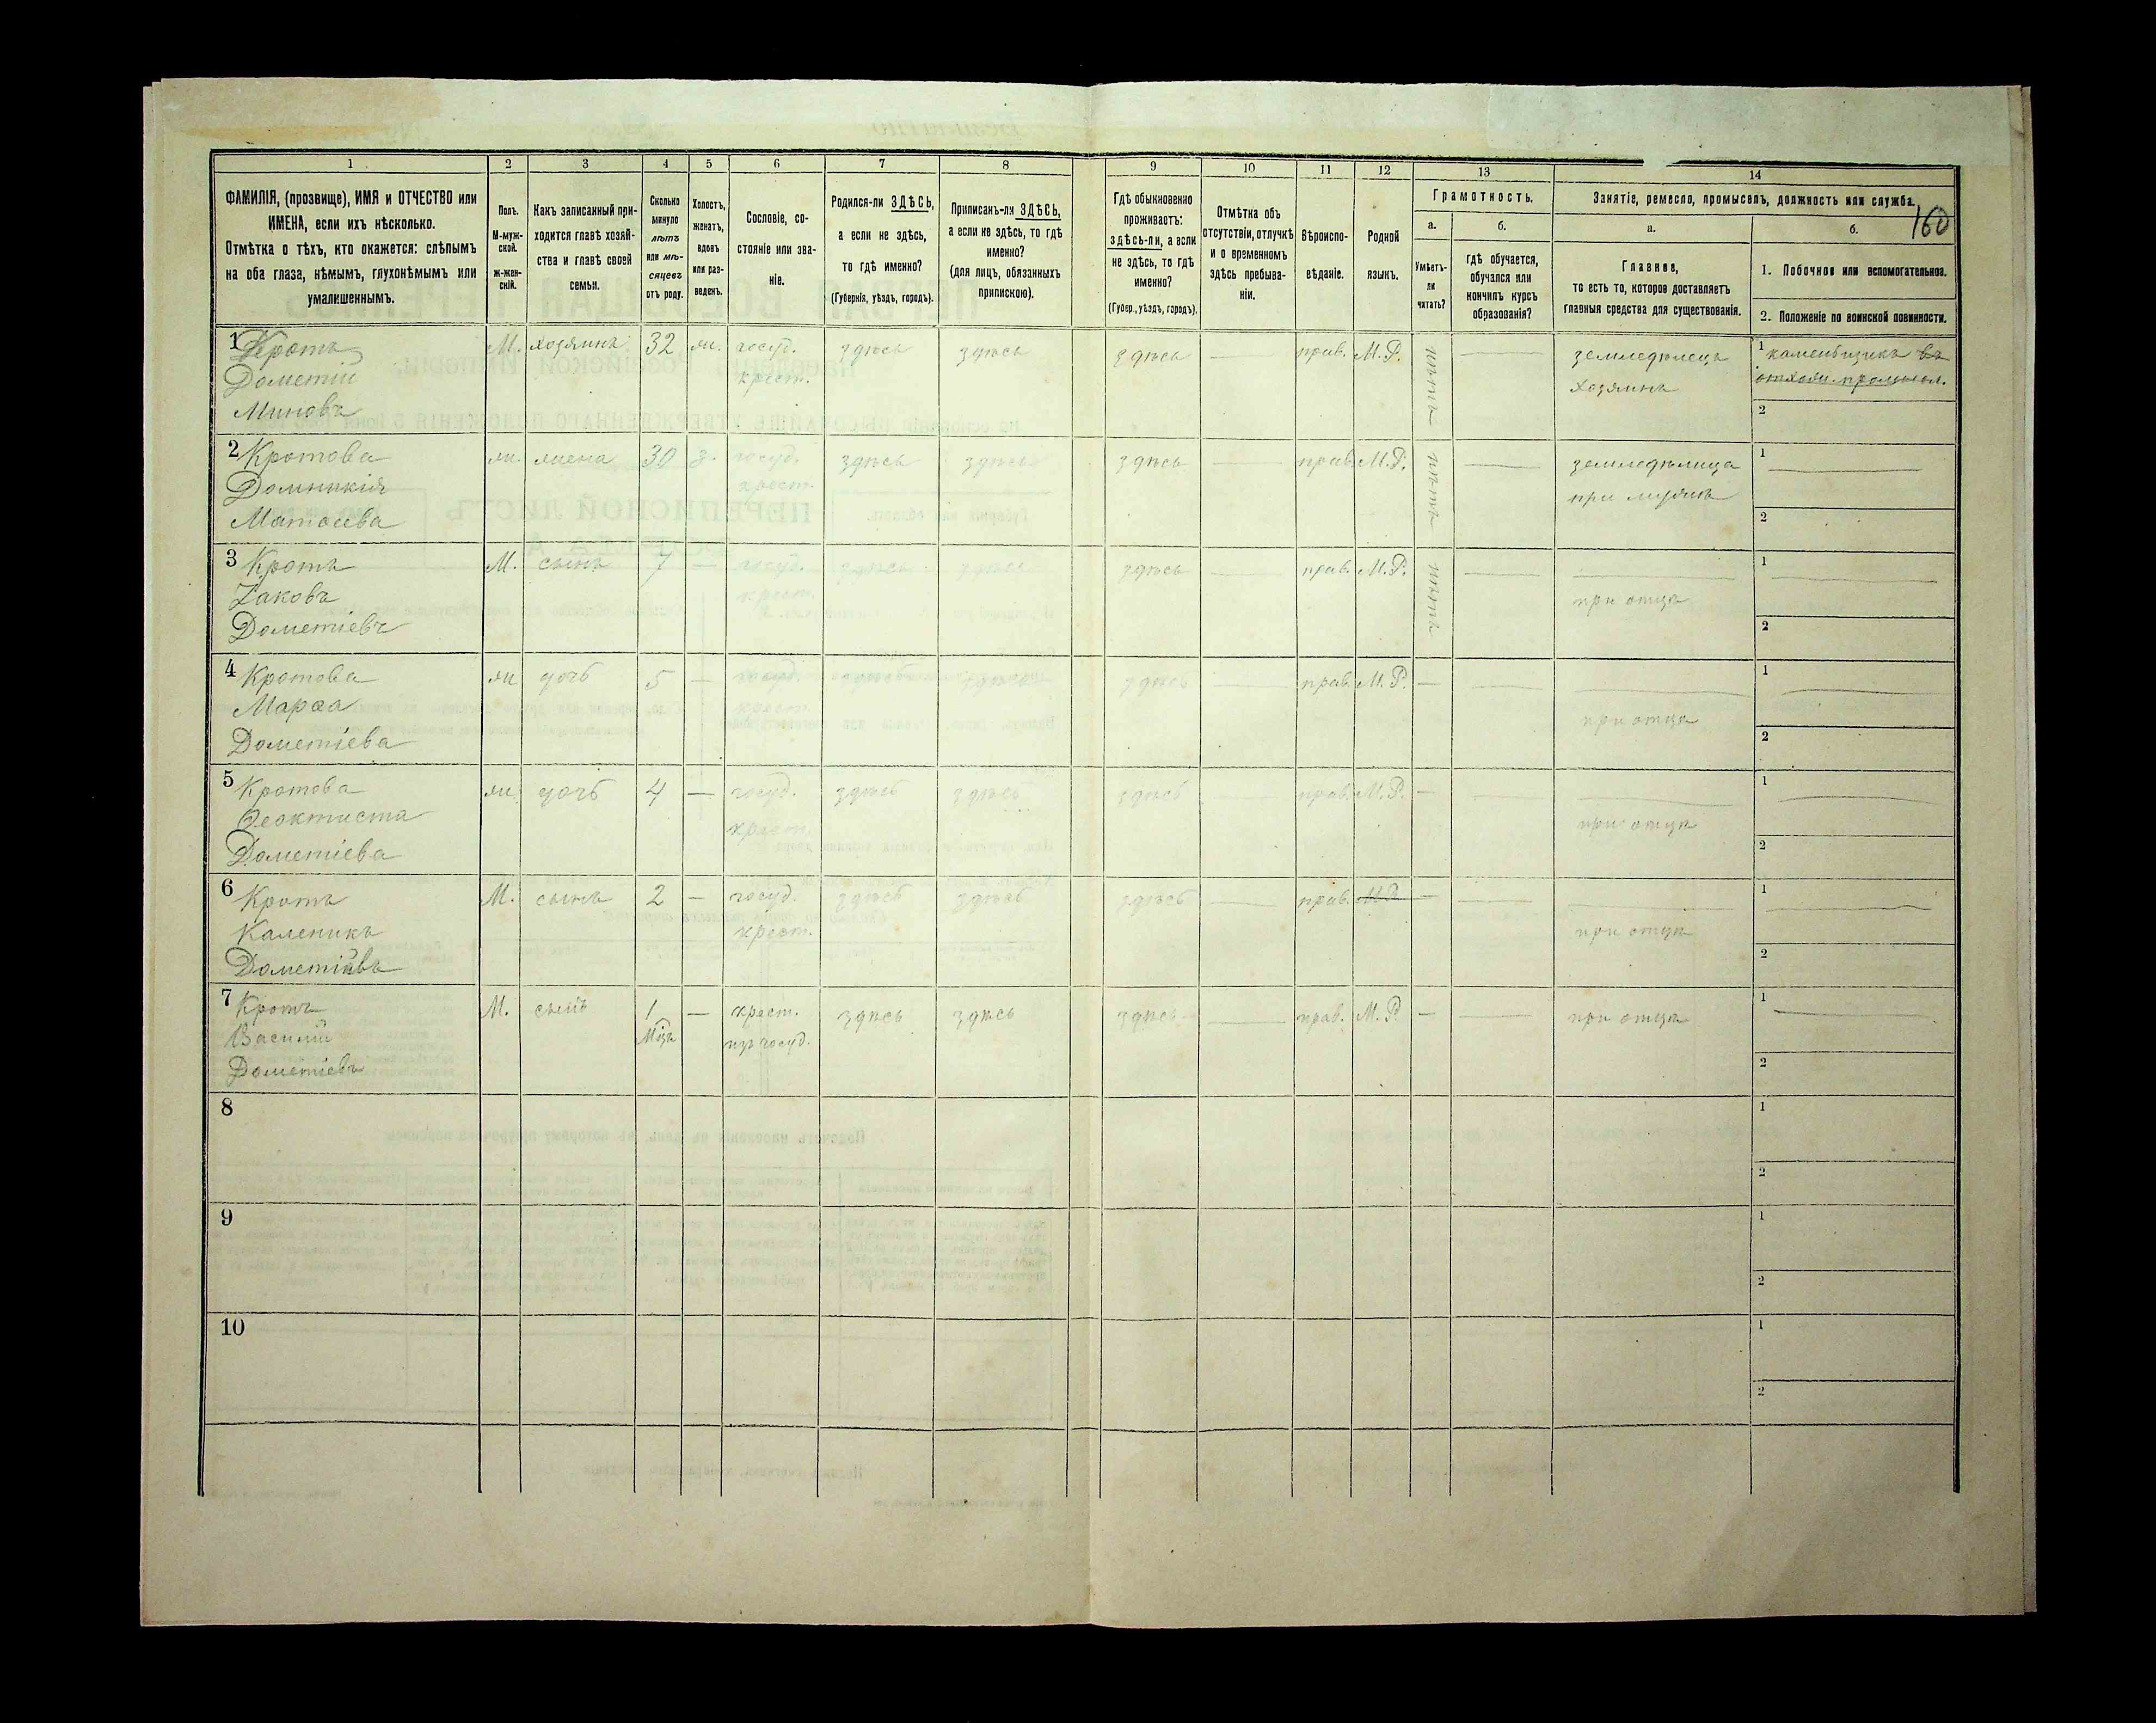 160
1 2 3 4 5 6 7 8 9 10 11 12 13 14
ФАМИЛІЯ, (прозвище), ИМЯ и ОТЧЕСТВО или
ИМЕНА, если ихъ нѣсколько.
Отмѣтка о тѣхъ, кто окажется: слѣпымъ
на оба глаза, нѣмымъ, глухонѣмымъ или
умалишеннымъ.
Полъ.
М-муж-
ской.
ж-жен-
скій.
Какъ записанный при-
ходится главѣ хозяй-
ства и главѣ своей
семьи.
Сколько
минуло
лѣтъ
или мѣ-
сяцевъ
отъ роду.
Холостъ,
женатъ,
вдовъ
или раз-
веденъ.
Сословіе, со-
стояніе или зва-
ніе.
Родился-ли ЗДѢСЬ,
а если не здѣсь,
то гдѣ именно?
(Губернія, уѣздъ, городъ).
Приписанъ-ли ЗДѢСЬ,
а если не здѣсь, то гдѣ
именно?
(для лицъ, обязанныхъ
припискою).
Гдѣ обыкновенно
проживаетъ:
здѣсь-ли, а если
не здѣсь, то гдѣ
именно?
(Губер., уѣздъ, городъ).
Отмѣтка объ
отсутствіи, отлучкѣ
и о временномъ
здѣсь пребыва-
ніи.
Вѣроиспо-
вѣданіе.
Родной
языкъ.
Грамотность.
а.
Умѣетъ-
ли
читать?
б.
гдѣ обучается,
обучался или
кончилъ курсъ
образованія?
Занятіе, ремесло, промыселъ, должность или служба.
а.
Главное,
то есть то, которое доставляетъ
главныя средства для существованія.
б.
1. Побочное или вспомогательное.
2. Положеніе по воинской повинности.
1 Кротъ М. хозяинъ 32 ж. госуд. здѣсь здѣсь здѣсь — прав. М.Р. нѣтъ — земледѣлецъ 1 каменьщикъ въ
Дометій крест. хозяинъ отхож. промысл.
Миновъ 2
2 Кротова ж. жена 30 з. госуд. здѣсь здѣсь здѣсь — прав. М.Р. нѣтъ — земледѣлица 1 —
Домникія крест. при мужѣ
Матѳеева 2
3 Кротъ М. сынъ 7 — госуд. здѣсь здѣсь здѣсь — прав. М.Р. нѣтъ — — 1 —
Яковъ крест. при отцѣ
Дометіевъ 2
4 Кротова ж дочь 5 — госуд. здѣсь здѣсь здѣсь — прав. М.Р. — — — 1 —
Марѳа крест. при отцѣ
Дометіева 2
5 Кротова ж. дочь 4 — госуд. здѣсь здѣсь здѣсь — прав. М.Р. — — — 1 —
Ѳеоктиста крест. при отцѣ
Дометіева 2
6 Кротъ М. сынъ 2 — госуд. здѣсь здѣсь здѣсь — прав. М.Р — — — 1 —
Каленикъ крест. при отцѣ
Дометіевъ 2
7 Кротъ М. сынъ 1 — крест. здѣсь здѣсь здѣсь — прав. М.Р. — — при отцѣ 1 —
Василій Мѣц изъ госуд.
Дометіевъ 2
8 1
2
9 1
2
10 1
2